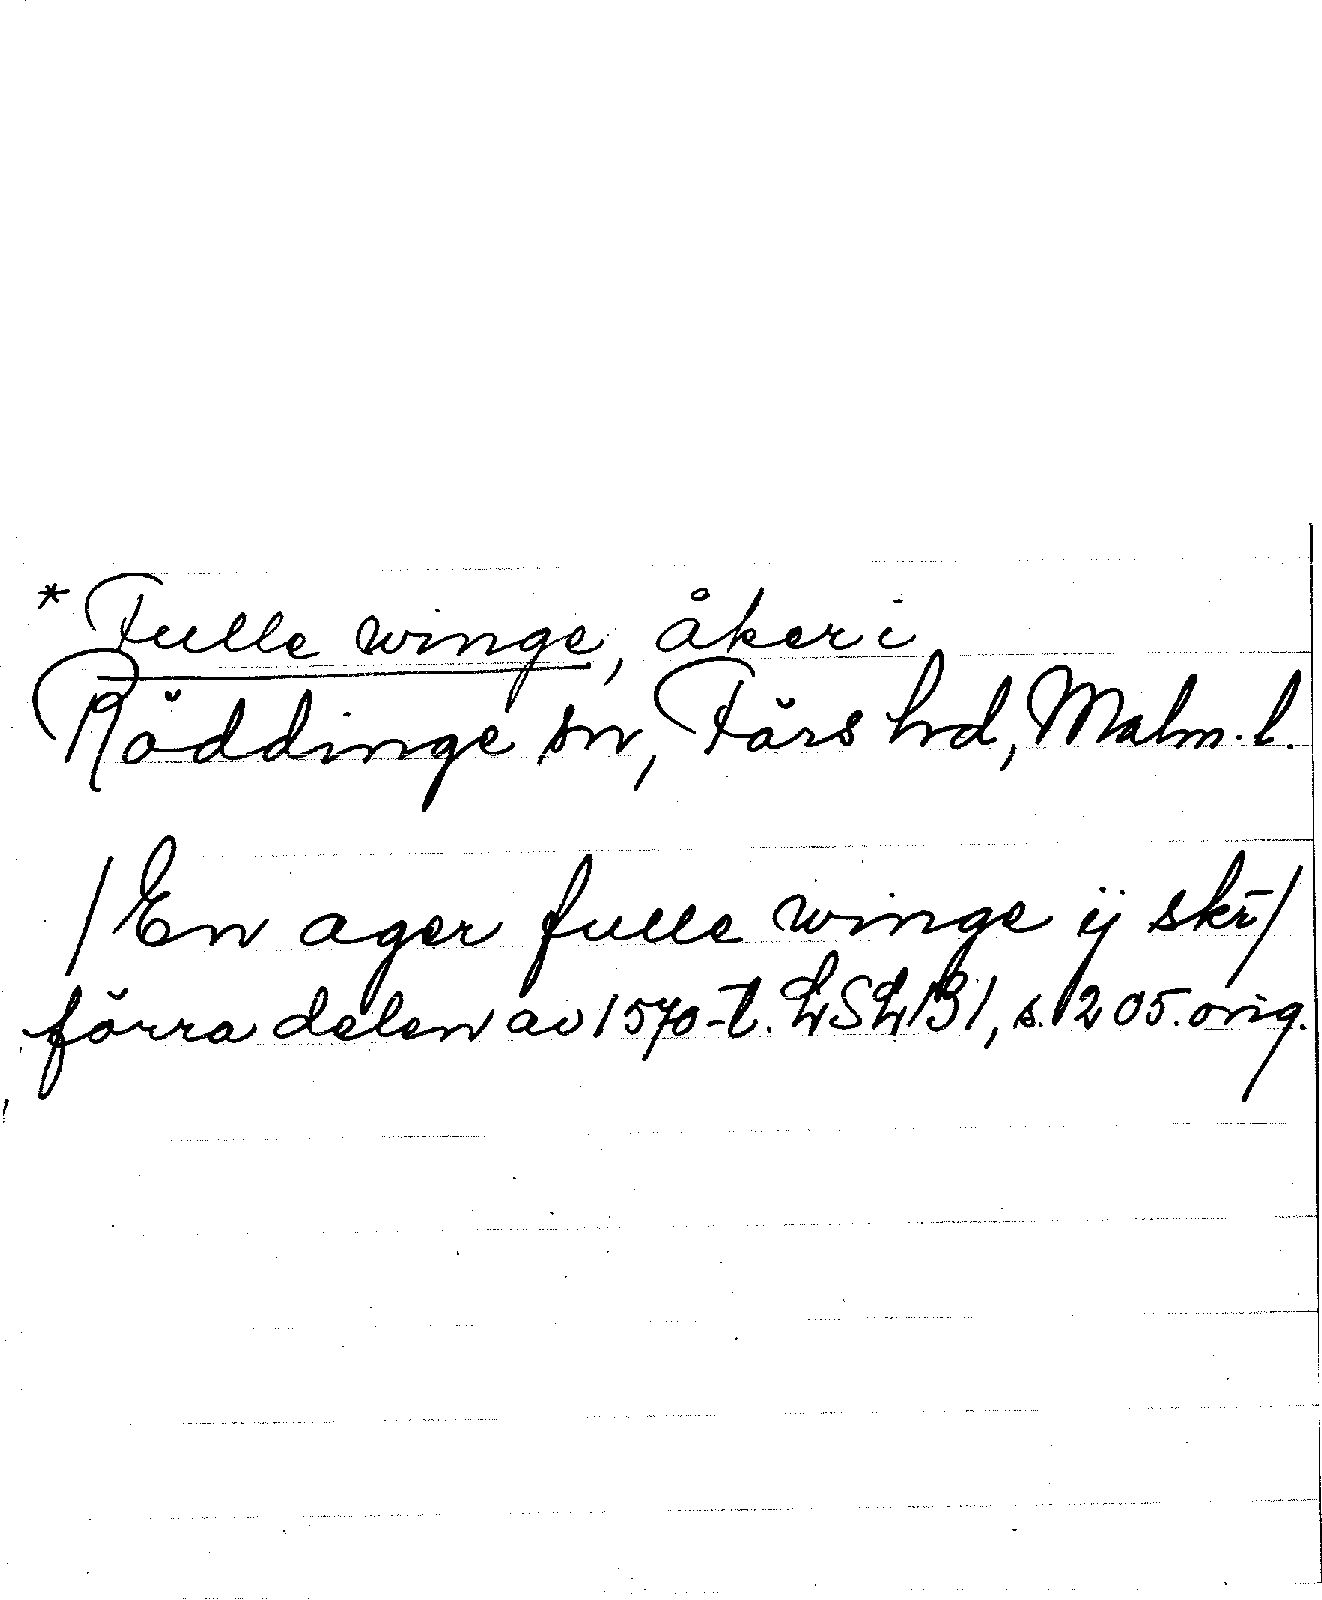 * Fulle winge, åker i
Röddinge sn, Färs hd, Malm. l.
/En ager fulle winge ij skr̄/
förra delen av 1570-t. LSLB1, s. 1205. orig.